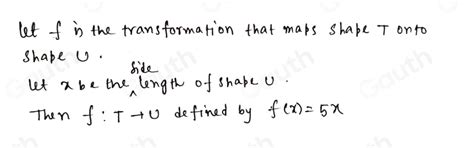 let f is the transformation that maps shape T onto
shape U.
let x be the side length of shape U.
Then f : T → U defined by f(x) = 5x